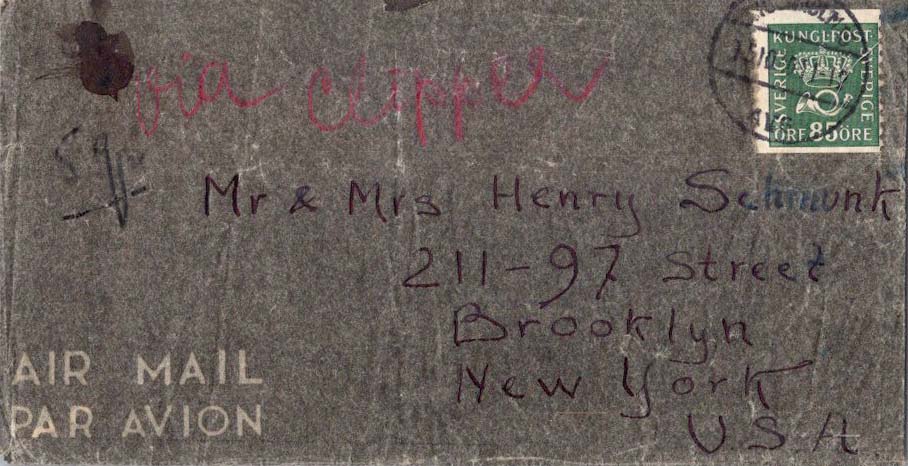 via clipper
KUNGL POST
SVERIGE SVERIGE
ÖRE 85 ÖRE
5 gr
Mr & Mrs Henry Schmunk
211-97 Street
Brooklyn
New York
USA
AIR MAIL
PAR AVION